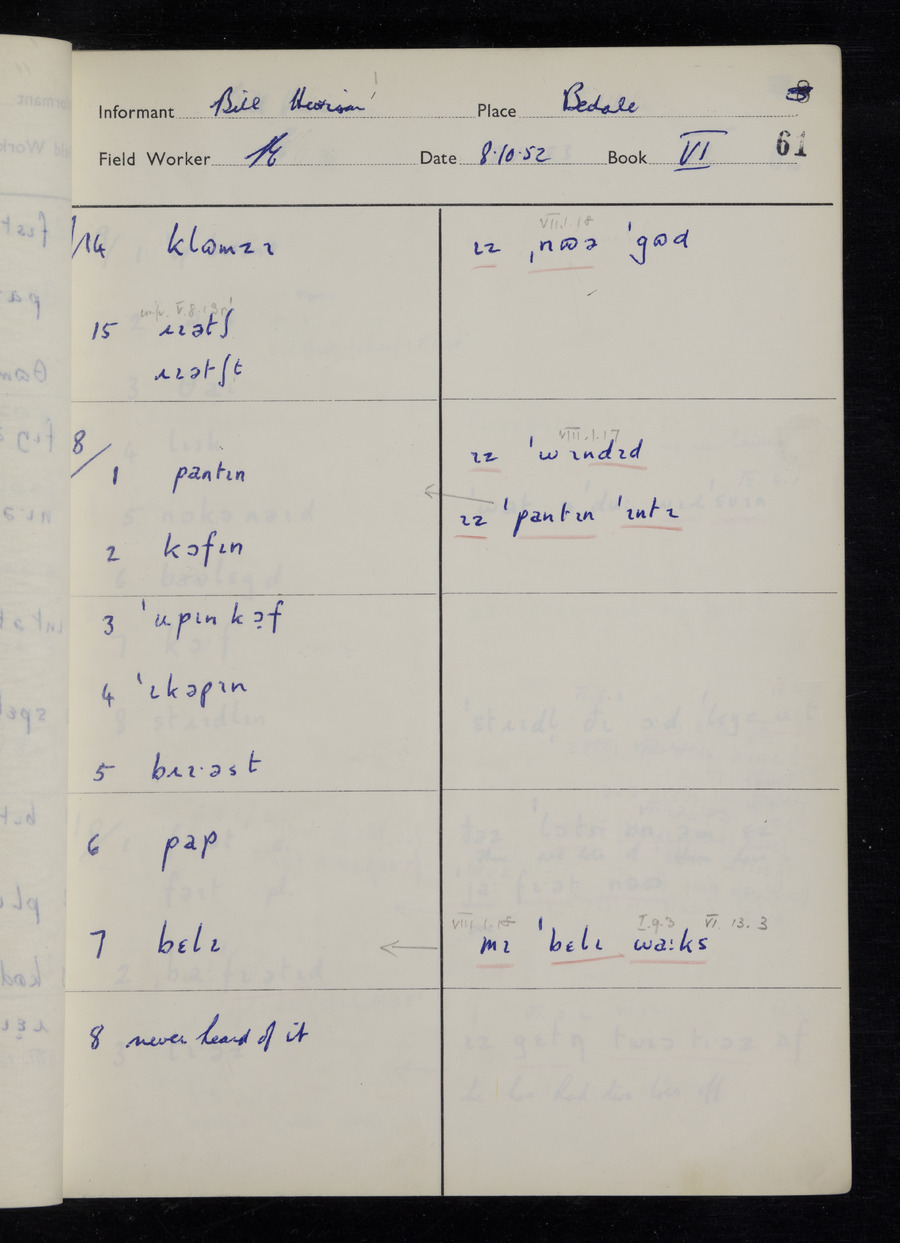 Informant Bill Place Bedale 8
Field Worker Date 8.10.52 Book VI 61
VII.1.18
/14 klɷmzɪ ɪz ˌnɷə ˈgɷd
V.8.13
15 ɹɪətʃ
ɹɪətʃt
8/
VIII.1.17
ɪz ˈwɪndɪd
1 pantɪn
ɪz ˈpantɪn ˈɪntɪ
2 kɔfɪn
3 ˈupɪn kɔ̣f
4 ˈɪkəpɪn
5 bɹɪ·əst
6 pap
VIII.1.18 I.9.3 VI.13.3
7 bɛlɪ mɪ ˈbɛlɪ waːks
8 never heard of it